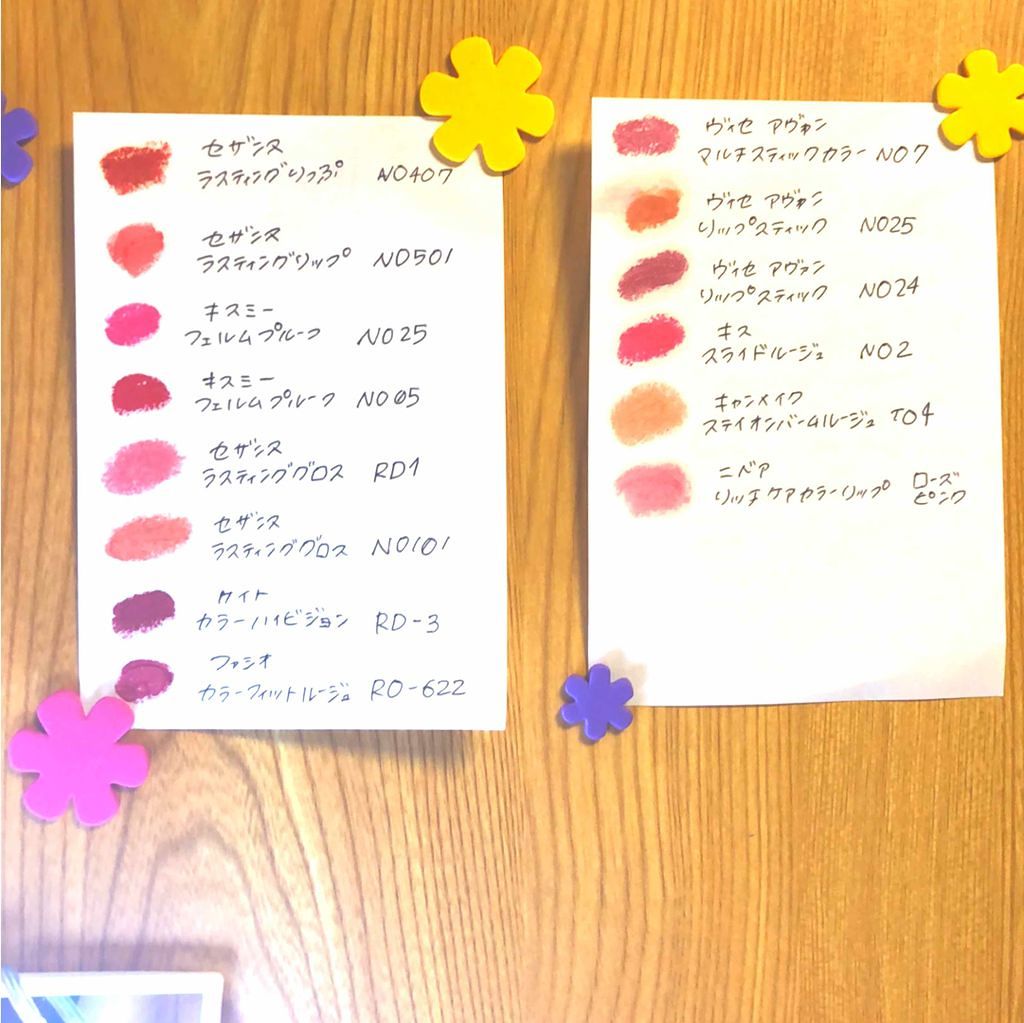 セザンヌ
ラスティングりっぷ NO407
セザンヌ
ラスティングリップ NO501
キスミー
フェルムプルーフ NO25
キスミー
フェルムプルーフ NO05
セザンヌ
ラスティンググロス RD1
セザンヌ
ラスティンググロス NO101
ケイト
カラーハイビジョン RD-3
ファシオ
カラーフィットルージュ RO-622
ヴィセ アヴァン
マルチスティックカラー NO7
ヴィセ アヴァン
リップスティック NO25
ヴィセ アヴァン
リップスティック NO24
キス
スライドルージュ NO2
キャンメイク
ステイオンバームルージュ T04
ニベア
リッチケアカラーリップ ローズ
ピンク